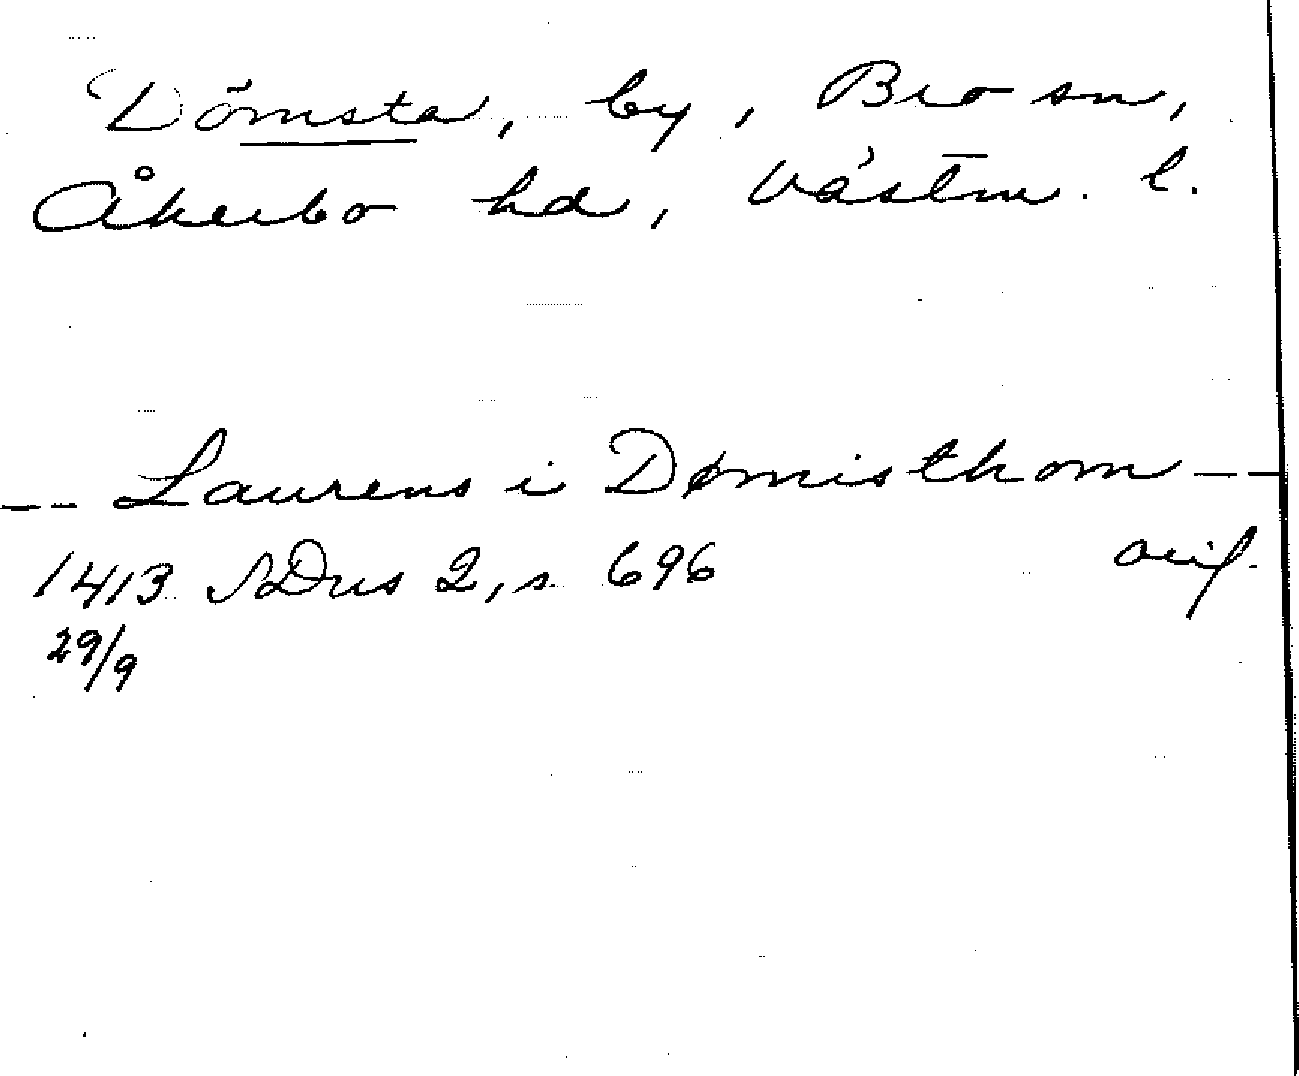 Dömsta, by, Bro sn,
Åkerbo hd, Västm. l.
-- Laurens i Dømisthom --
1413 SDns 2, s. 696 orig.
29/9